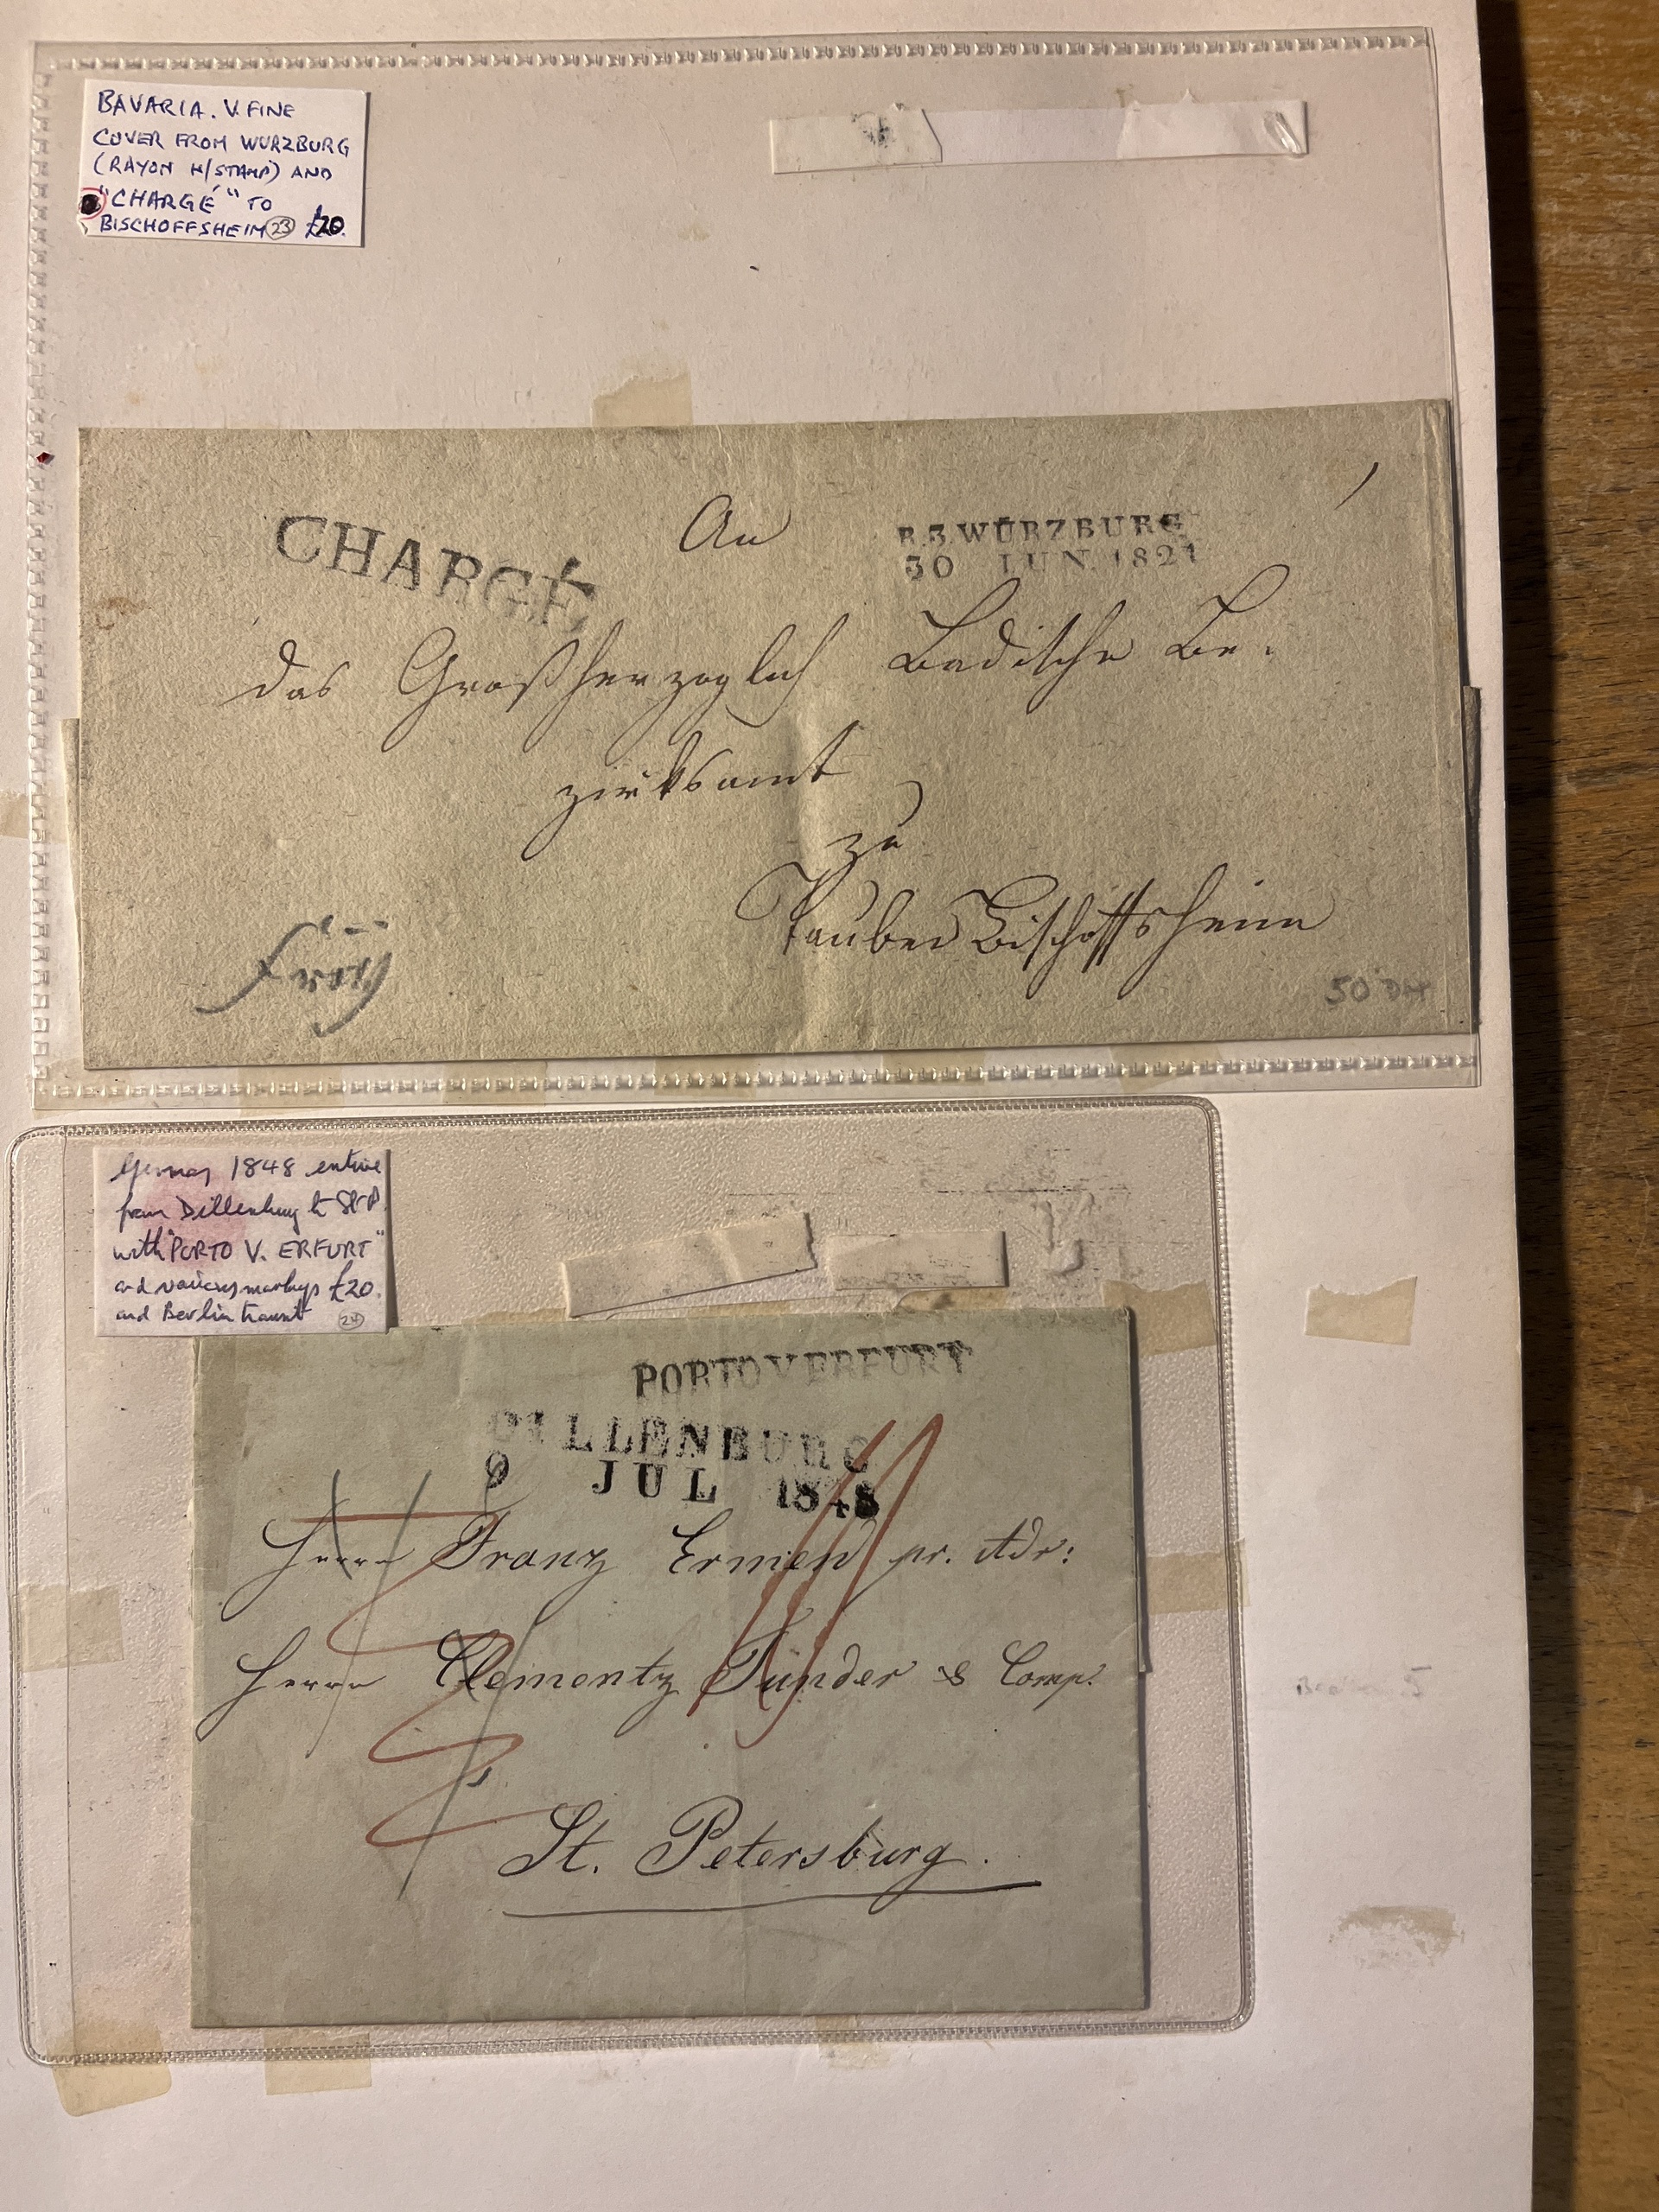 BAVARIA. V. FINE
COVER FROM WURZBURG
(RAYON H/STAMP) AND
"CHARGÉ" TO
BISCHOFFSHEIM 23 £20.
CHARGÉ
An
R.3.WÜRZBURG
30 IUN. 1821
das Großherzoglich Badische Be-
zirksamt
zu
Tauber Bischoffsheim
50 DM
Germany 1848 entire
from Dillenburg to St P.
with "PORTO V. ERFURT"
and various markings £20.
and Berlin transit 24
PORTO V ERFURT
DILLENBURG
9 JUL 1848
Herrn Franz Ermen pr. Adr:
Herrn Clementz Sunder & Comp.
St. Petersburg.